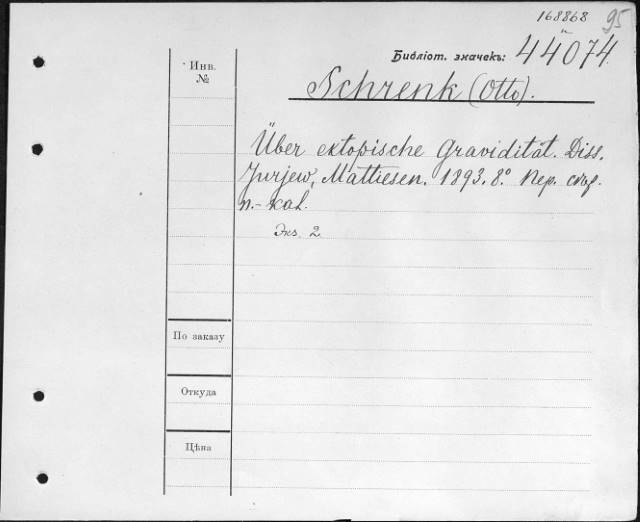 168868
95
Библіот. значекъ: 44074.
Инв.
№
Schrenk (Otto).
Über ektopische Gravidität. Diss.
Jurjew, Mattiesen. 1893. 8° Пер.
п.-кал.
Экз. 2
По заказу
Откуда
Цѣна